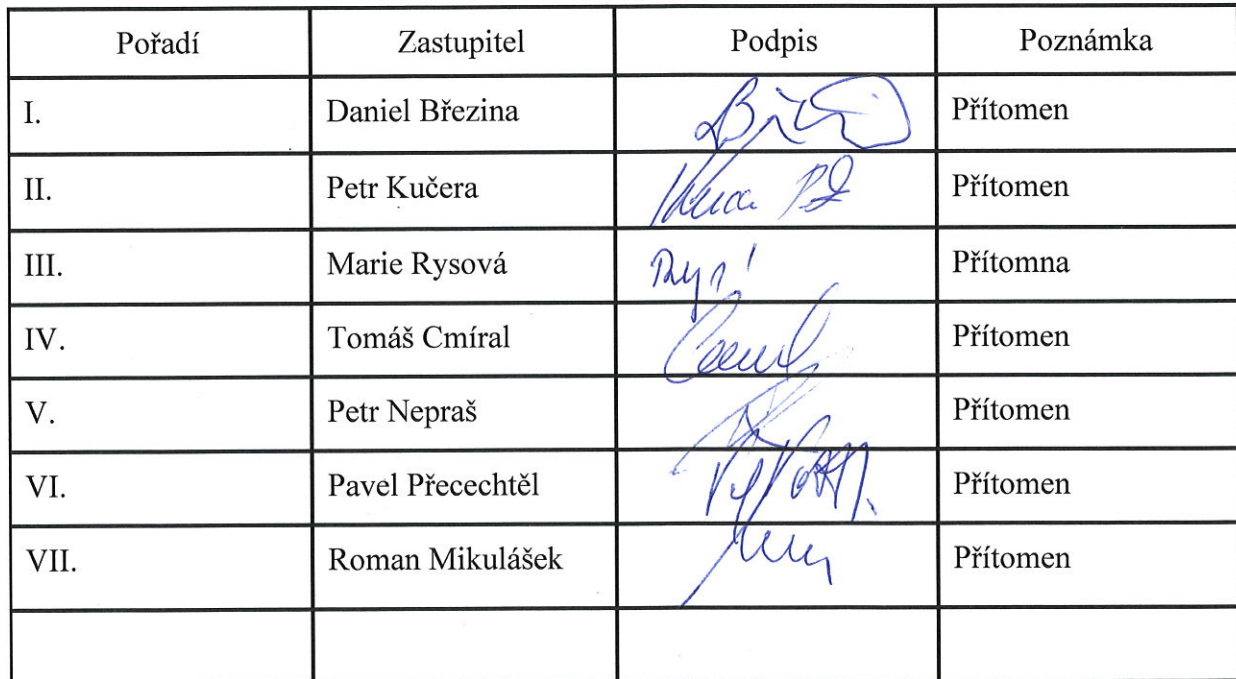 Pořadí Zastupitel Podpis Poznámka
I. Daniel Březina Přítomen
II. Petr Kučera Přítomen
III. Marie Rysová Přítomna
IV. Tomáš Cmíral Přítomen
V. Petr Nepraš Přítomen
VI. Pavel Přecechtěl Přítomen
VII. Roman Mikulášek Přítomen